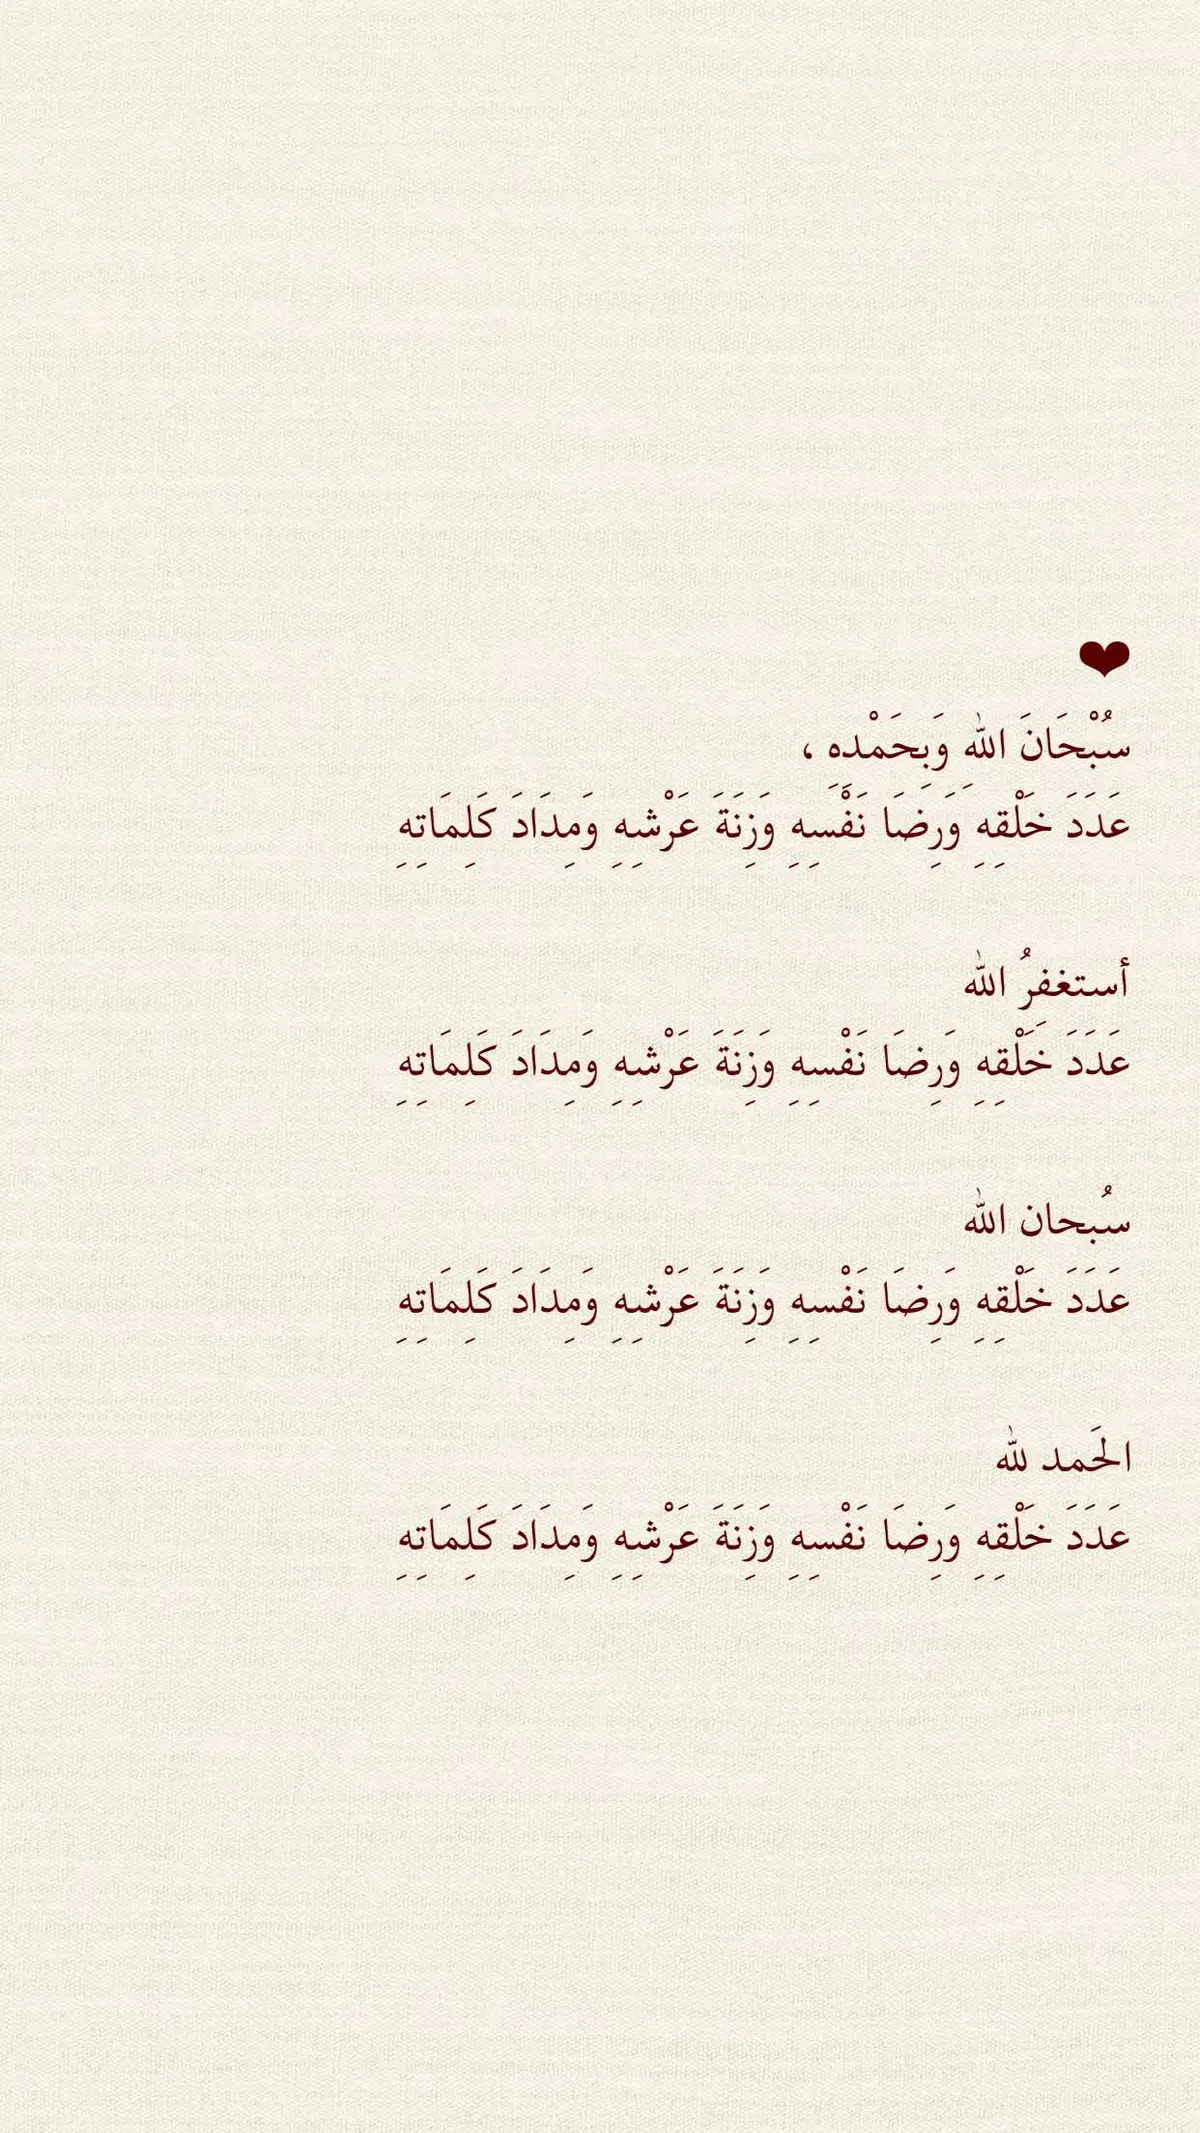 ❤
سُبْحَانَ اللهِ وَبِحَمْدِهِ ،
عَدَدَ خَلْقِهِ وَرِضَا نَفْسِهِ وَزِنَةَ عَرْشِهِ وَمِدَادَ كَلِمَاتِهِ
أستغفِرُ الله
عَدَدَ خَلْقِهِ وَرِضَا نَفْسِهِ وَزِنَةَ عَرْشِهِ وَمِدَادَ كَلِمَاتِهِ
سُبحان الله
عَدَدَ خَلْقِهِ وَرِضَا نَفْسِهِ وَزِنَةَ عَرْشِهِ وَمِدَادَ كَلِمَاتِهِ
الحَمد لله
عَدَدَ خَلْقِهِ وَرِضَا نَفْسِهِ وَزِنَةَ عَرْشِهِ وَمِدَادَ كَلِمَاتِهِ